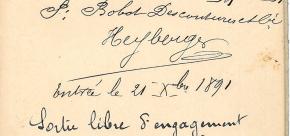 P. Bobot Descoutures et Cie
Heyberger
Entrée le 21 Xbre 1891
Sortie libre d'engagement